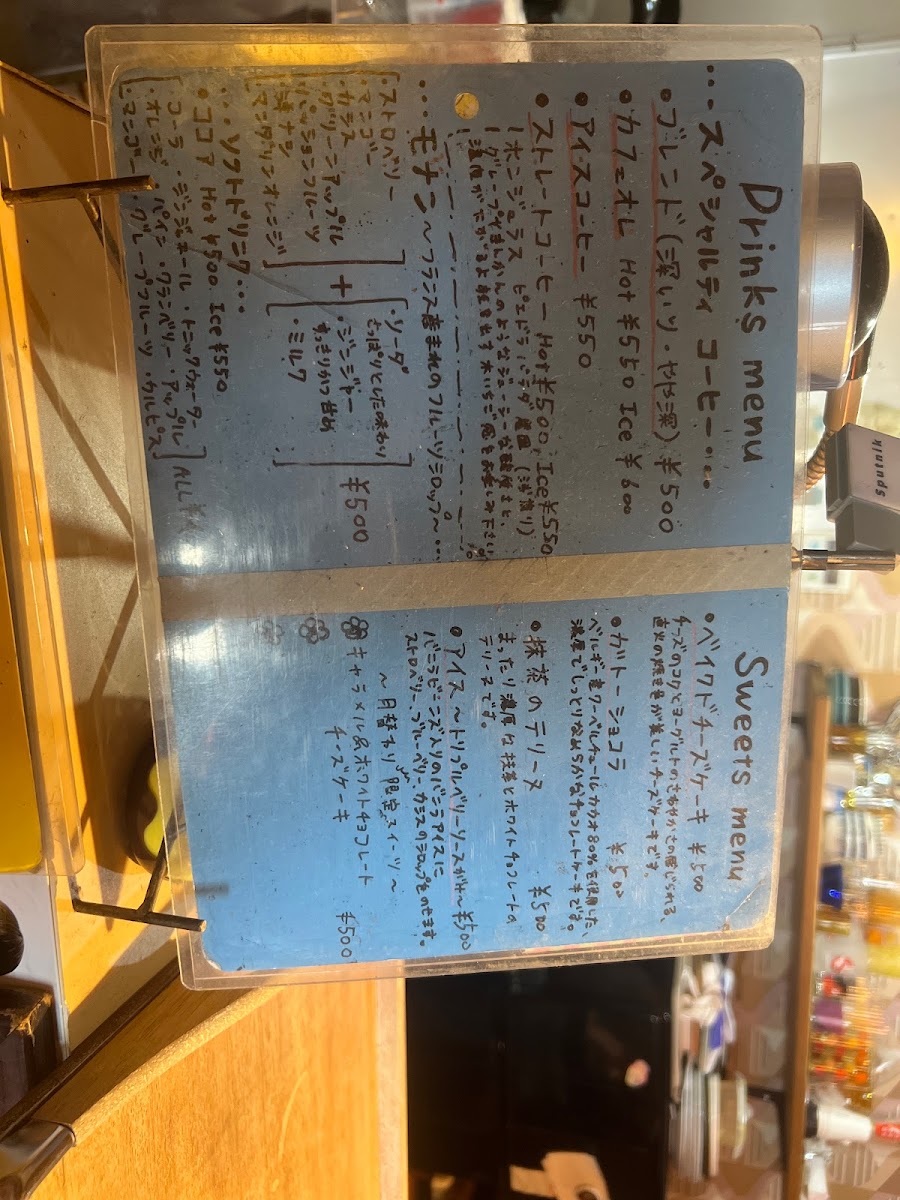 Drinks menu
・・・スペシャルティ コーヒー・・・
・ブレンド(深いり・やや深) ¥500
・カフェオレ Hot ¥550 Ice ¥600
・アイスコーヒー ¥550
・ストレートコーヒー Hot¥500, Ice¥550
ホンジュラス ピエドラパンダ農園 (浅煎り)
グレープやみかんのようなジュージーな酸味と、
・・・モナン〜フランス産まれのフルーツシロップ〜・・・
・ストロベリー
・マンゴー
・カシス
・グリーンアップル
・パッションフルーツ
・バナナ
・マンダリンオレンジ
+
・ソーダ
さっぱりとした味わり
・ジンジャー
・ミルク
¥500
・・・ソフトドリンク・・・
・ココア Hot ¥500 Ice ¥550
・コーラ・ジンジャエール・トニックウォーター
・オレンジ・パイン・クランベリー・アップル
・マンゴー・グレープフルーツ・カルピス
ALL
Sweets menu
・ベイクドチーズケーキ ¥500
チーズのコクとヨーグルトのさわやかさの感じられる、
直火の焼き目が美しいチーズケーキです。
・ガトーショコラ ¥500
ベルギー産クーベルチュールとカカオ80%を使用した、
濃厚でしっとりなめらかなチョコレートケーキです。
・抹茶のテリーヌ ¥500
まったり濃厚な抹茶とホワイトチョコレートの
テリーヌです。
・アイス〜トリプルベリーソースがけ〜¥500
バニラビーンズ入りのバニラアイスに
ストロベリー、ブルーベリー、カシスのシロップをのせます。
〜月替わり限定スイーツ〜
キャラメル&ホワイトチョコレート
チーズケーキ ¥500
sputnik